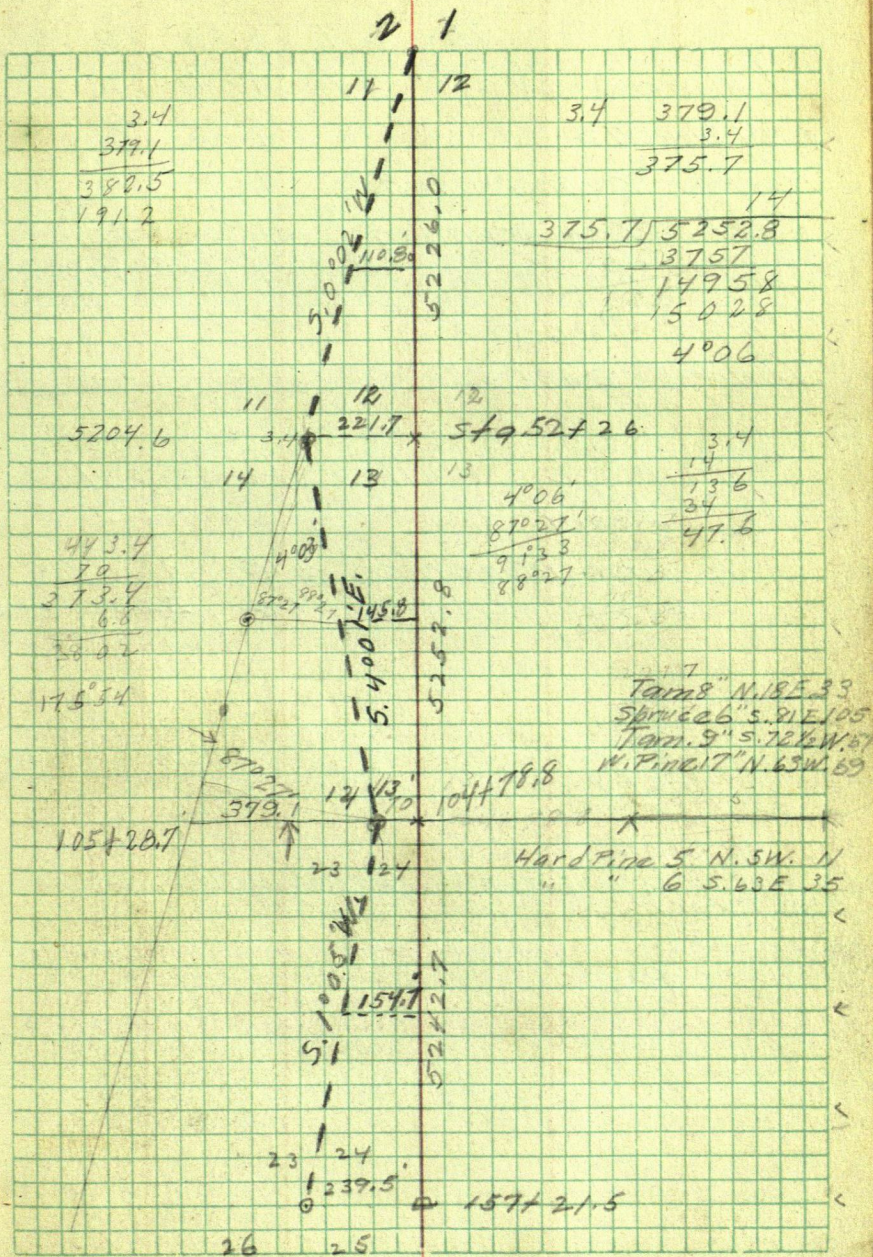 2 1
11 12
3.4
379.1
382.5
191.2
3.4 379.1
3.4
375.7
14
375.7 5252.8
3757
14958
15028
4°06
S. 0°02' W
110.8
5226.0
11 12 12
5204.6
3.4 221.7 Sta 52+26
14 13 13
3.4
14
136
34
47.6
4°06'
87°27'
91°33
88°27
443.4
70
373.4
6.8
3802
175°54
4°03'
87°27 88°27
145.8
S. 4°01' E.
5252.8
Tam 8" N.18E.33
Spruce 6" S.81E.105
Tam. 9" S.72½W.57
W. Pine 17" N.63W.69
87°27'
379.1
14 13
70
104+78.8
105+28.7
23 24
Hard Pine 5 N.5W. 11
" " 6 S.63E 35
S. 1°0.5' W.
154.7
5242.7
23 24
239.5'
157+21.5
26 25